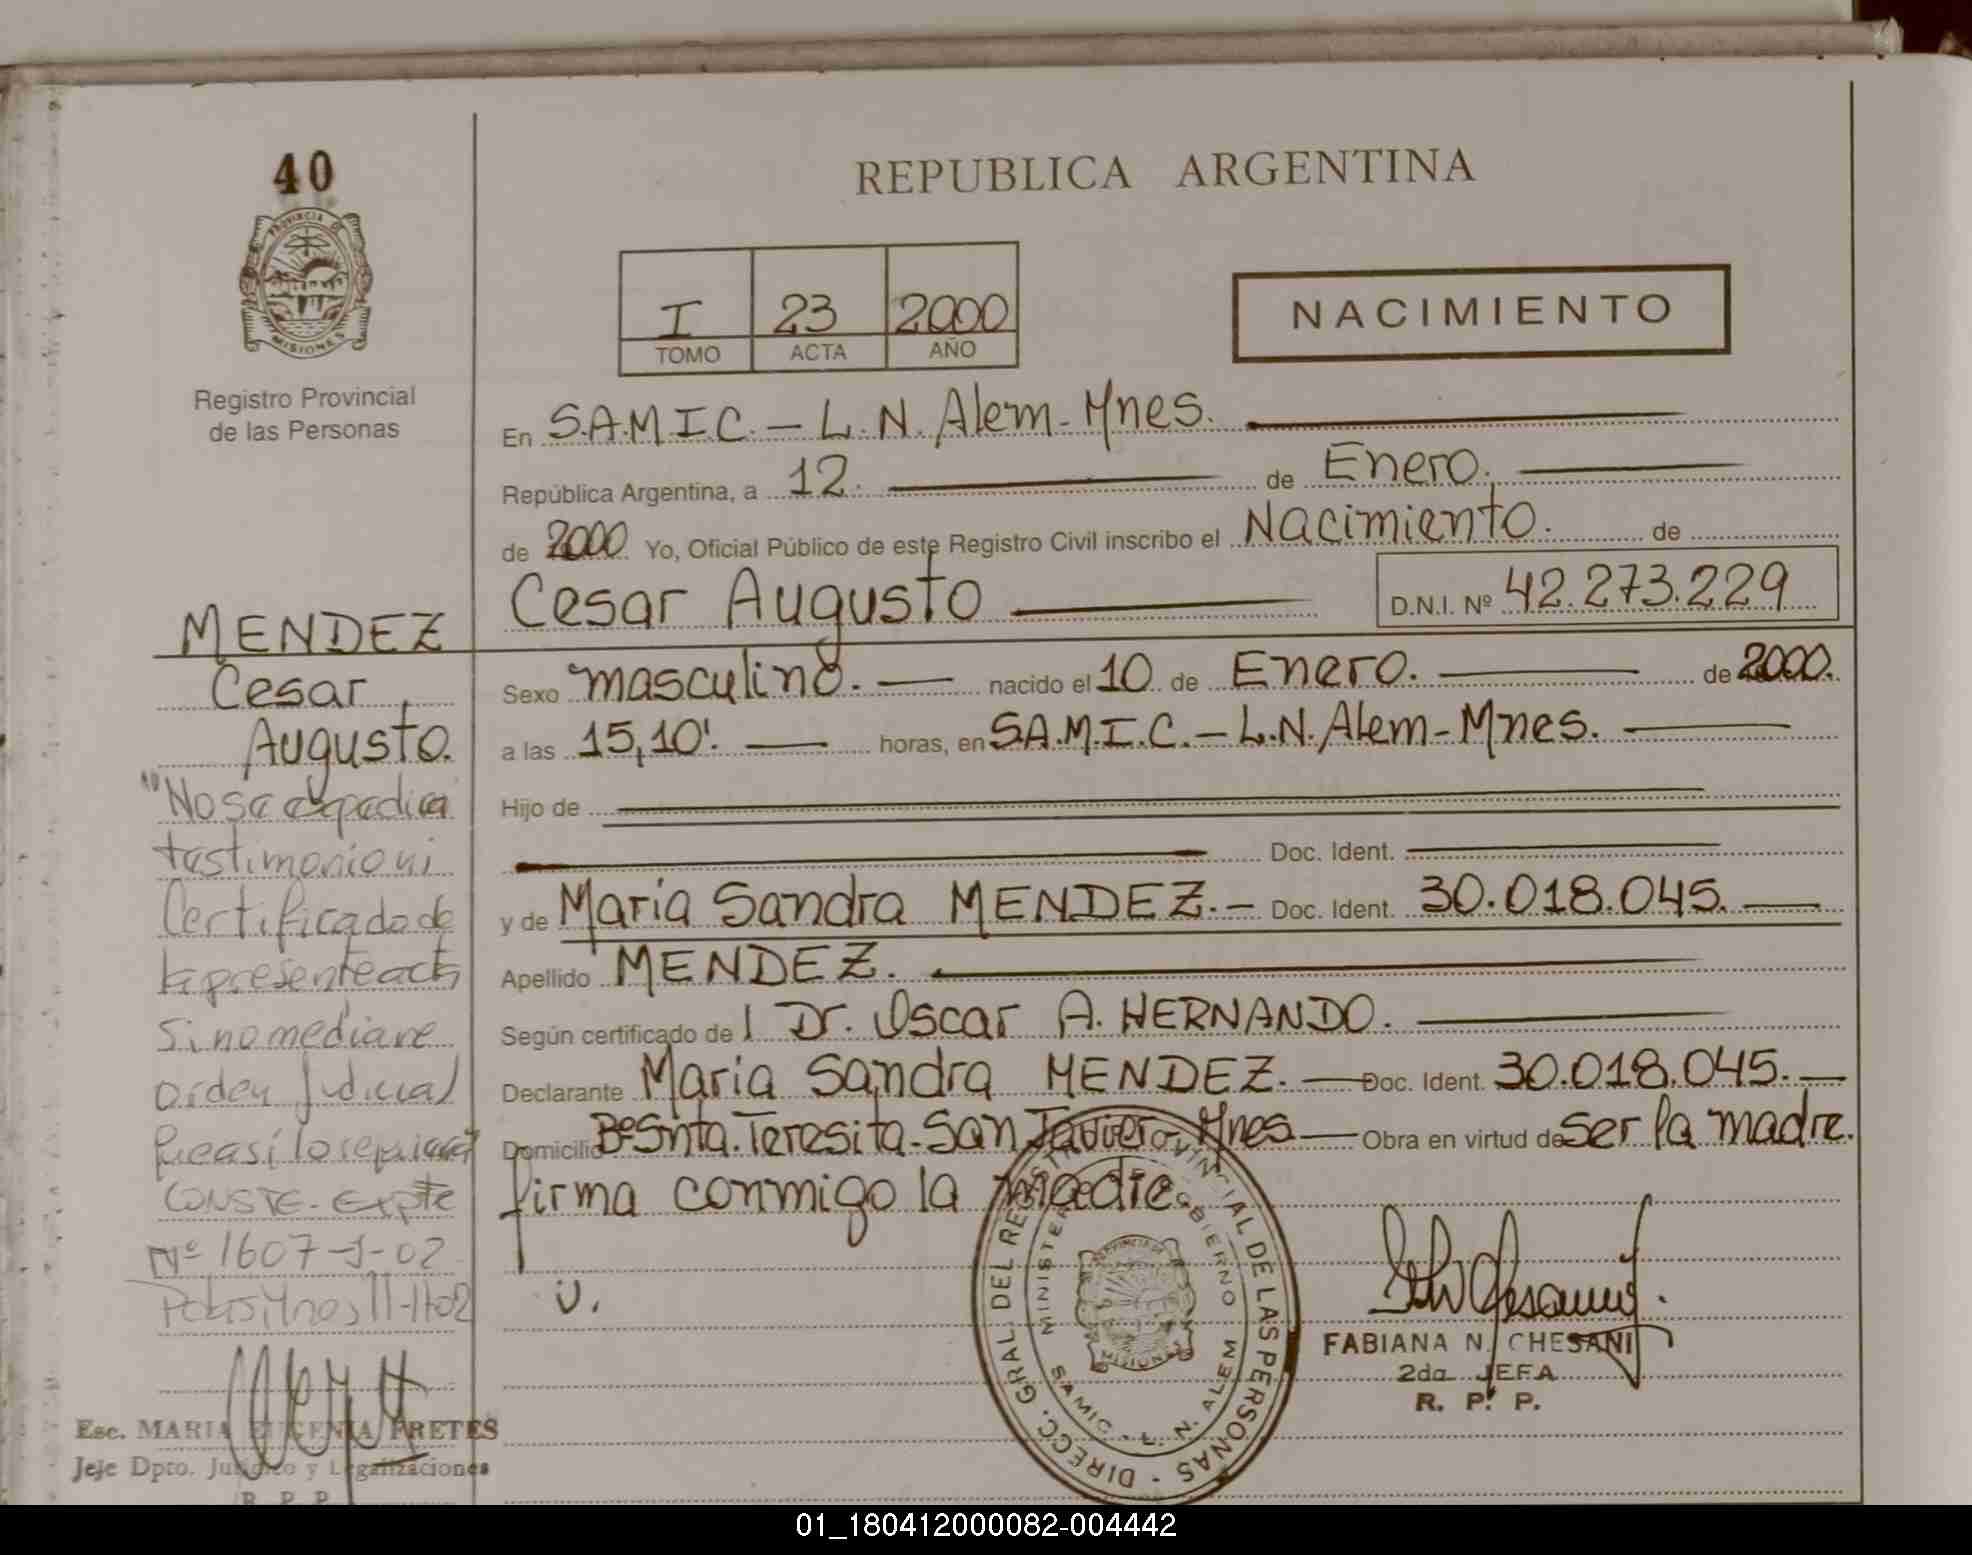 40
PROVINCIA DE
MISIONES
Registro Provincial
de las Personas
REPUBLICA ARGENTINA
I 23 2000
TOMO ACTA AÑO
NACIMIENTO
En S.A.M.I.C. – L.N. Alem - Mnes.
República Argentina, a 12. de Enero.
de 2000 Yo, Oficial Público de este Registro Civil inscribo el Nacimiento. de
Cesar Augusto D.N.I. Nº 42.273.229
Sexo masculino. nacido el 10 de Enero. de 2000.
a las 15,10'. horas, en S.A.M.I.C. – L.N. Alem - Mnes.
Hijo de
Doc. Ident.
y de Maria Sandra MENDEZ. – Doc. Ident. 30.018.045.
Apellido MENDEZ.
Según certificado del Dr. Oscar A. HERNANDO.
Declarante Maria Sandra MENDEZ. – Doc. Ident. 30.018.045. –
Domicilio Bº Snta. Teresita - San Javier - Mnes – Obra en virtud de ser la madre.
firma conmigo la madre.
MENDEZ
Cesar
Augusto.
"No se expedira
testimonio ni
Certificado de
la presente acta
Si no mediare
orden Judicial
que así lo requiera"
CONSTE - Expte
Nº 1607-J-02
Posadas, Mnes, 11-02
Esc. MARIA EUGENIA FRETES
Jefe Dpto. Jurídico y Legalizaciones
R. P. P.
DIRECC. GRAL. DEL REGISTRO PROVINCIAL DE LAS PERSONAS
MINISTERIO DE GOBIERNO
SAMIC - L. N. ALEM
PROVINCIA DE
MISIONES
FABIANA N. CHESANI
2da JEFA
R. P. P.
01_180412000082-004442